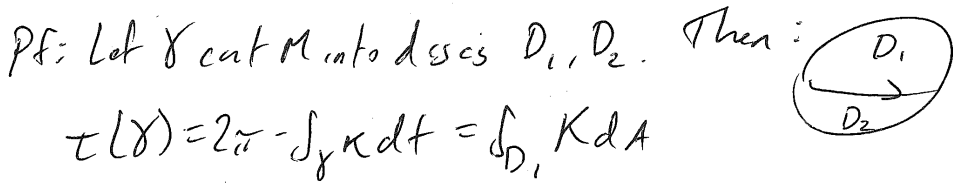 Pf: Let γ cut M into discs D₁, D₂. Then: D₁
D₂
τ(γ) = 2π - ∫_γ κ dt = ∫_{D₁} K dA